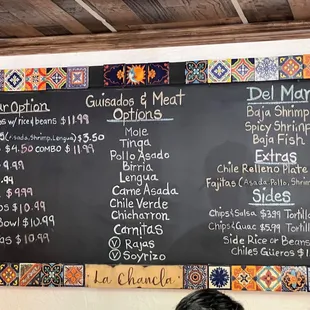 ur Option
os w/rice & beans $11.99
(Asada, Shrimp, Lengua) $3.50
$4.50 COMBO $11.99
9.99
.99
$9.99
os $10.99
Bowl $10.99
as $10.99
Guisados & Meat
Options
Mole
Tinga
Pollo Asado
Birria
Lengua
Carne Asada
Chile Verde
Chicharron
Carnitas
V Rajas
V Soyrizo
Del Mar
Baja Shrimp
Spicy Shrimp
Baja Fish
Extras
Chile Relleno Plate
Fajitas (Asada, Pollo, Shrim
Sides
Chips & Salsa $3.99 Tortill
Chips & Guac $5.99 Tortill
Side Rice or Beans
Chiles Güeros $1.
La Chancla